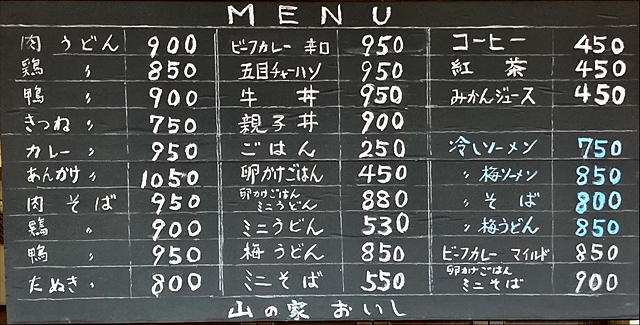 MENU
肉 うどん 900
鶏 〃 850
鴨 〃 900
きつね 〃 750
カレー 〃 950
あんかけ 〃 1050
肉 そば 950
鶏 〃 900
鴨 〃 950
たぬき 〃 800
ビーフカレー 辛口 950
五目チャーハン 950
牛 丼 950
親子丼 900
ごはん 250
卵かけごはん 450
卵かけごはん
ミニうどん 880
ミニうどん 530
梅うどん 850
ミニそば 550
コーヒー 450
紅 茶 450
みかんジュース 450
冷しソーメン 750
〃 梅ソーメン 850
〃 そ ば 800
〃 梅うどん 850
ビーフカレー マイルド 850
卵かけごはん
ミニそば 900
山の家 おいし